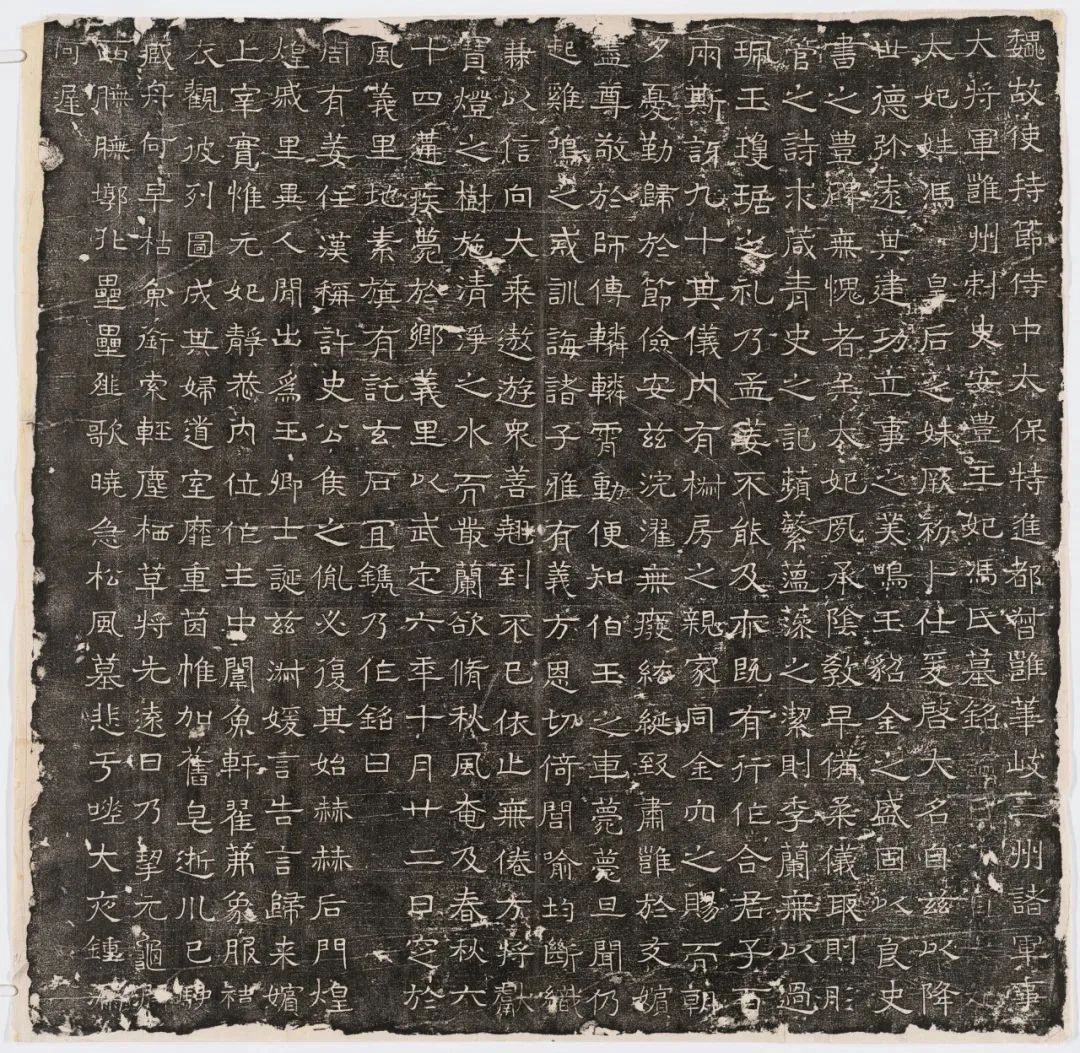 魏故使持節侍中太保特進都督雝華岐三州諸軍事
大將軍雝州刾史安豊王妃馮氏墓銘
太妃姓馮皇后之妹厥初卜仕爰啓大名自兹以降
世德弥遠其建功立事之美鳴玉貂金之盛固以良史
書之豊碑無愧者矣太妃夙承陰教早備柔儀取則彤
管之詩求箴青史之記蘋蘩薀藻之潔則季蘭無以過
珮玉瓊琚之礼乃孟姜不能及亦既有行作合君子百
兩斯訝九十其儀內有椒房之親家同金穴之賜而朝
夕憂勤歸於節儉安兹浣濯無癈紘綖致肅雝於友嬪
盡尊敬於師傅轔轔霄動便知伯玉之車薨薨旦聞仍
起雞鳴之戒訓誨諸子雅有義方恩切倚閭喻均斷織
兼以信向大乘遨遊衆善翹到不已依止無倦方將獻
寶燈之樹施清淨之水而叢蘭欲脩秋風奄及春秋六
十四遘疾薨於鄉義里以武定六年十月廿二日窆於
風義里地素旗有託玄石冝鐫乃作銘曰
周有姜任漢稱許史公侯之胤必復其始赫赫后門煌
煌戚里異人閒出爲王卿士誕兹淑媛言告言歸来嬪
上宰實惟元妃靜恭內位作主中闈魚軒翟茀象服褘
衣觀彼列圖成其婦道室靡重茵惟加舊皂逝川已
藏舟何早枯魚銜索輕塵栖草將先遠日乃挈元龜
膴膴墎北壘壘歌曉急松風墓悲于嗟大夜鍾漏
何遲